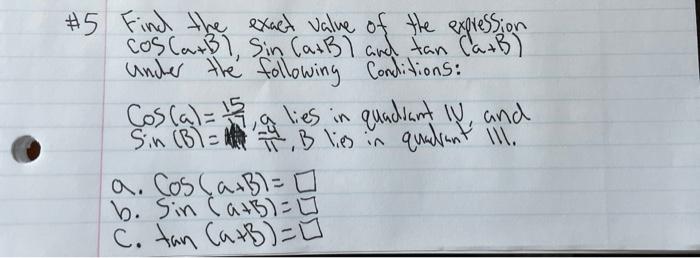 #5 Find the exact value of the expression
cos(a+B), Sin(a+B) and tan(a+B)
under the following Conditions:
Cos(a)= 15/17, a lies in quadrant IV, and
Sin(B)= -4/11, B lies in quadrant III.
a. Cos(a+B)= □
b. Sin(a+B)= □
C. tan(a+B)= □